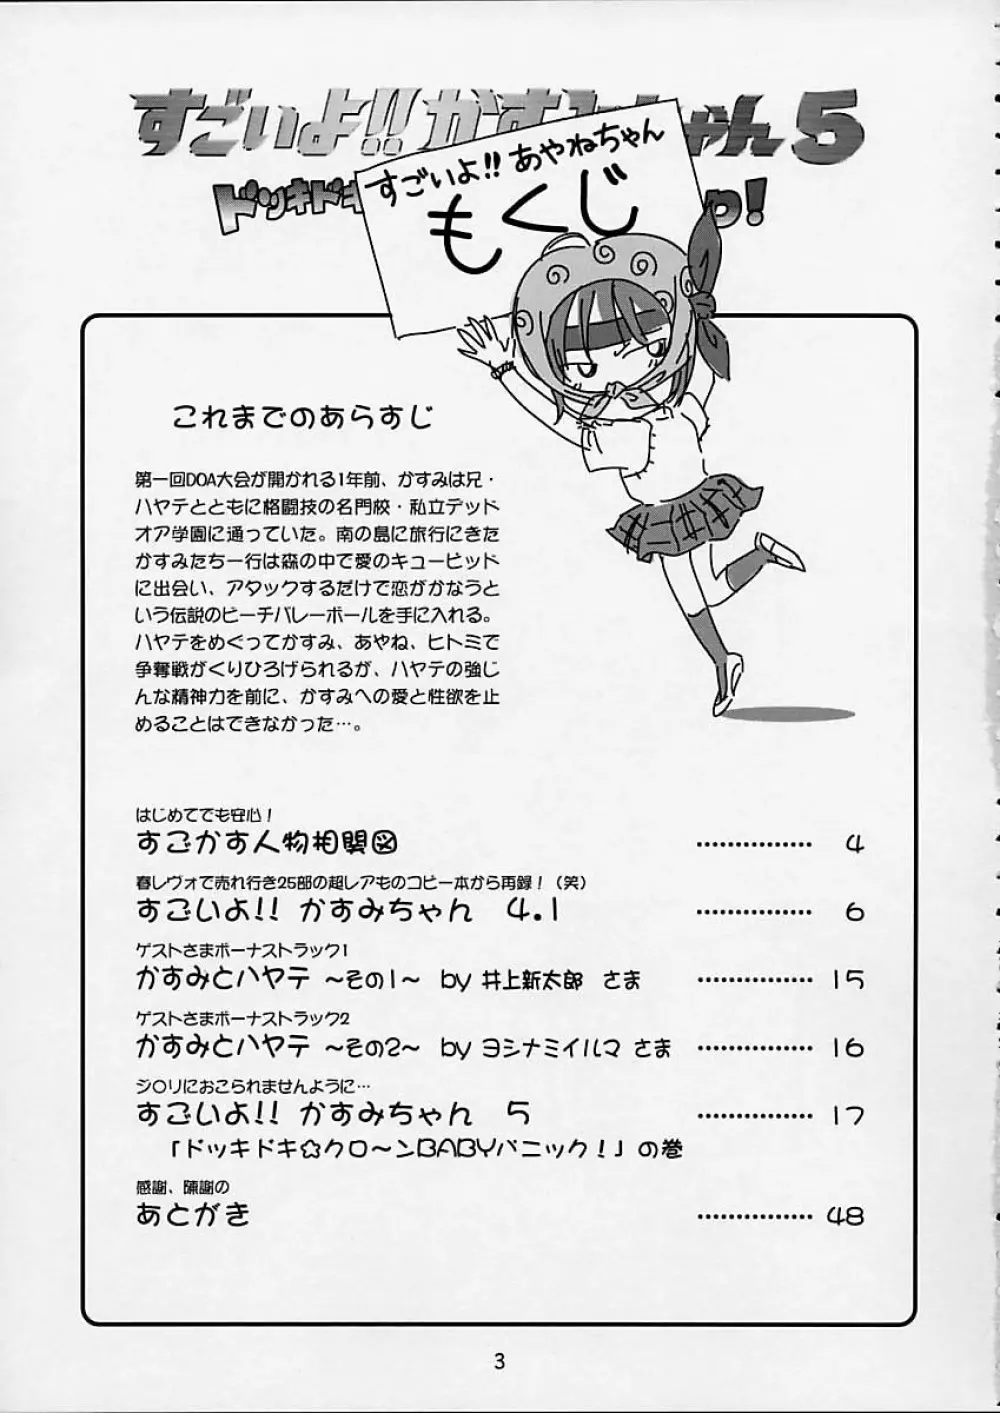 すごいよ!! かすみちゃん5
ドッキドキ
!
すごいよ!! あやねちゃん
もくじ
これまでのあらすじ
第一回DOA大会が開かれる1年前、かすみは兄・
ハヤテとともに格闘技の名門校・私立デッド
オア学園に通っていた。南の島に旅行にきた
かすみたち一行は森の中で愛のキューピッド
に出会い、アタックするだけで恋がかなうと
いう伝説のビーチバレーボールを手に入れる。
ハヤテをめぐってかすみ、あやね、ヒトミで
争奪戦がくりひろげられるが、ハヤテの強じ
んな精神力を前に、かすみへの愛と性欲を止
めることはできなかった…。
はじめてでも安心!
すごかす人物相関図 ……………… 4
春レヴォで売れ行き25部の超レアものコピー本から再録!(笑)
すごいよ!! かすみちゃん 4.1 ……………… 6
ゲストさまボーナストラック1
かすみとハヤテ ~その1~ by 井上新太郎 さま ……………… 15
ゲストさまボーナストラック2
かすみとハヤテ ~その2~ by ヨシナミイルマ さま ……………… 16
ジ○リにおこられませんように…
すごいよ!! かすみちゃん 5 ……………… 17
「ドッキドキ☆クロ～ンBABYパニック!」の巻
感謝、陳謝の
あとがき ……………… 48
3